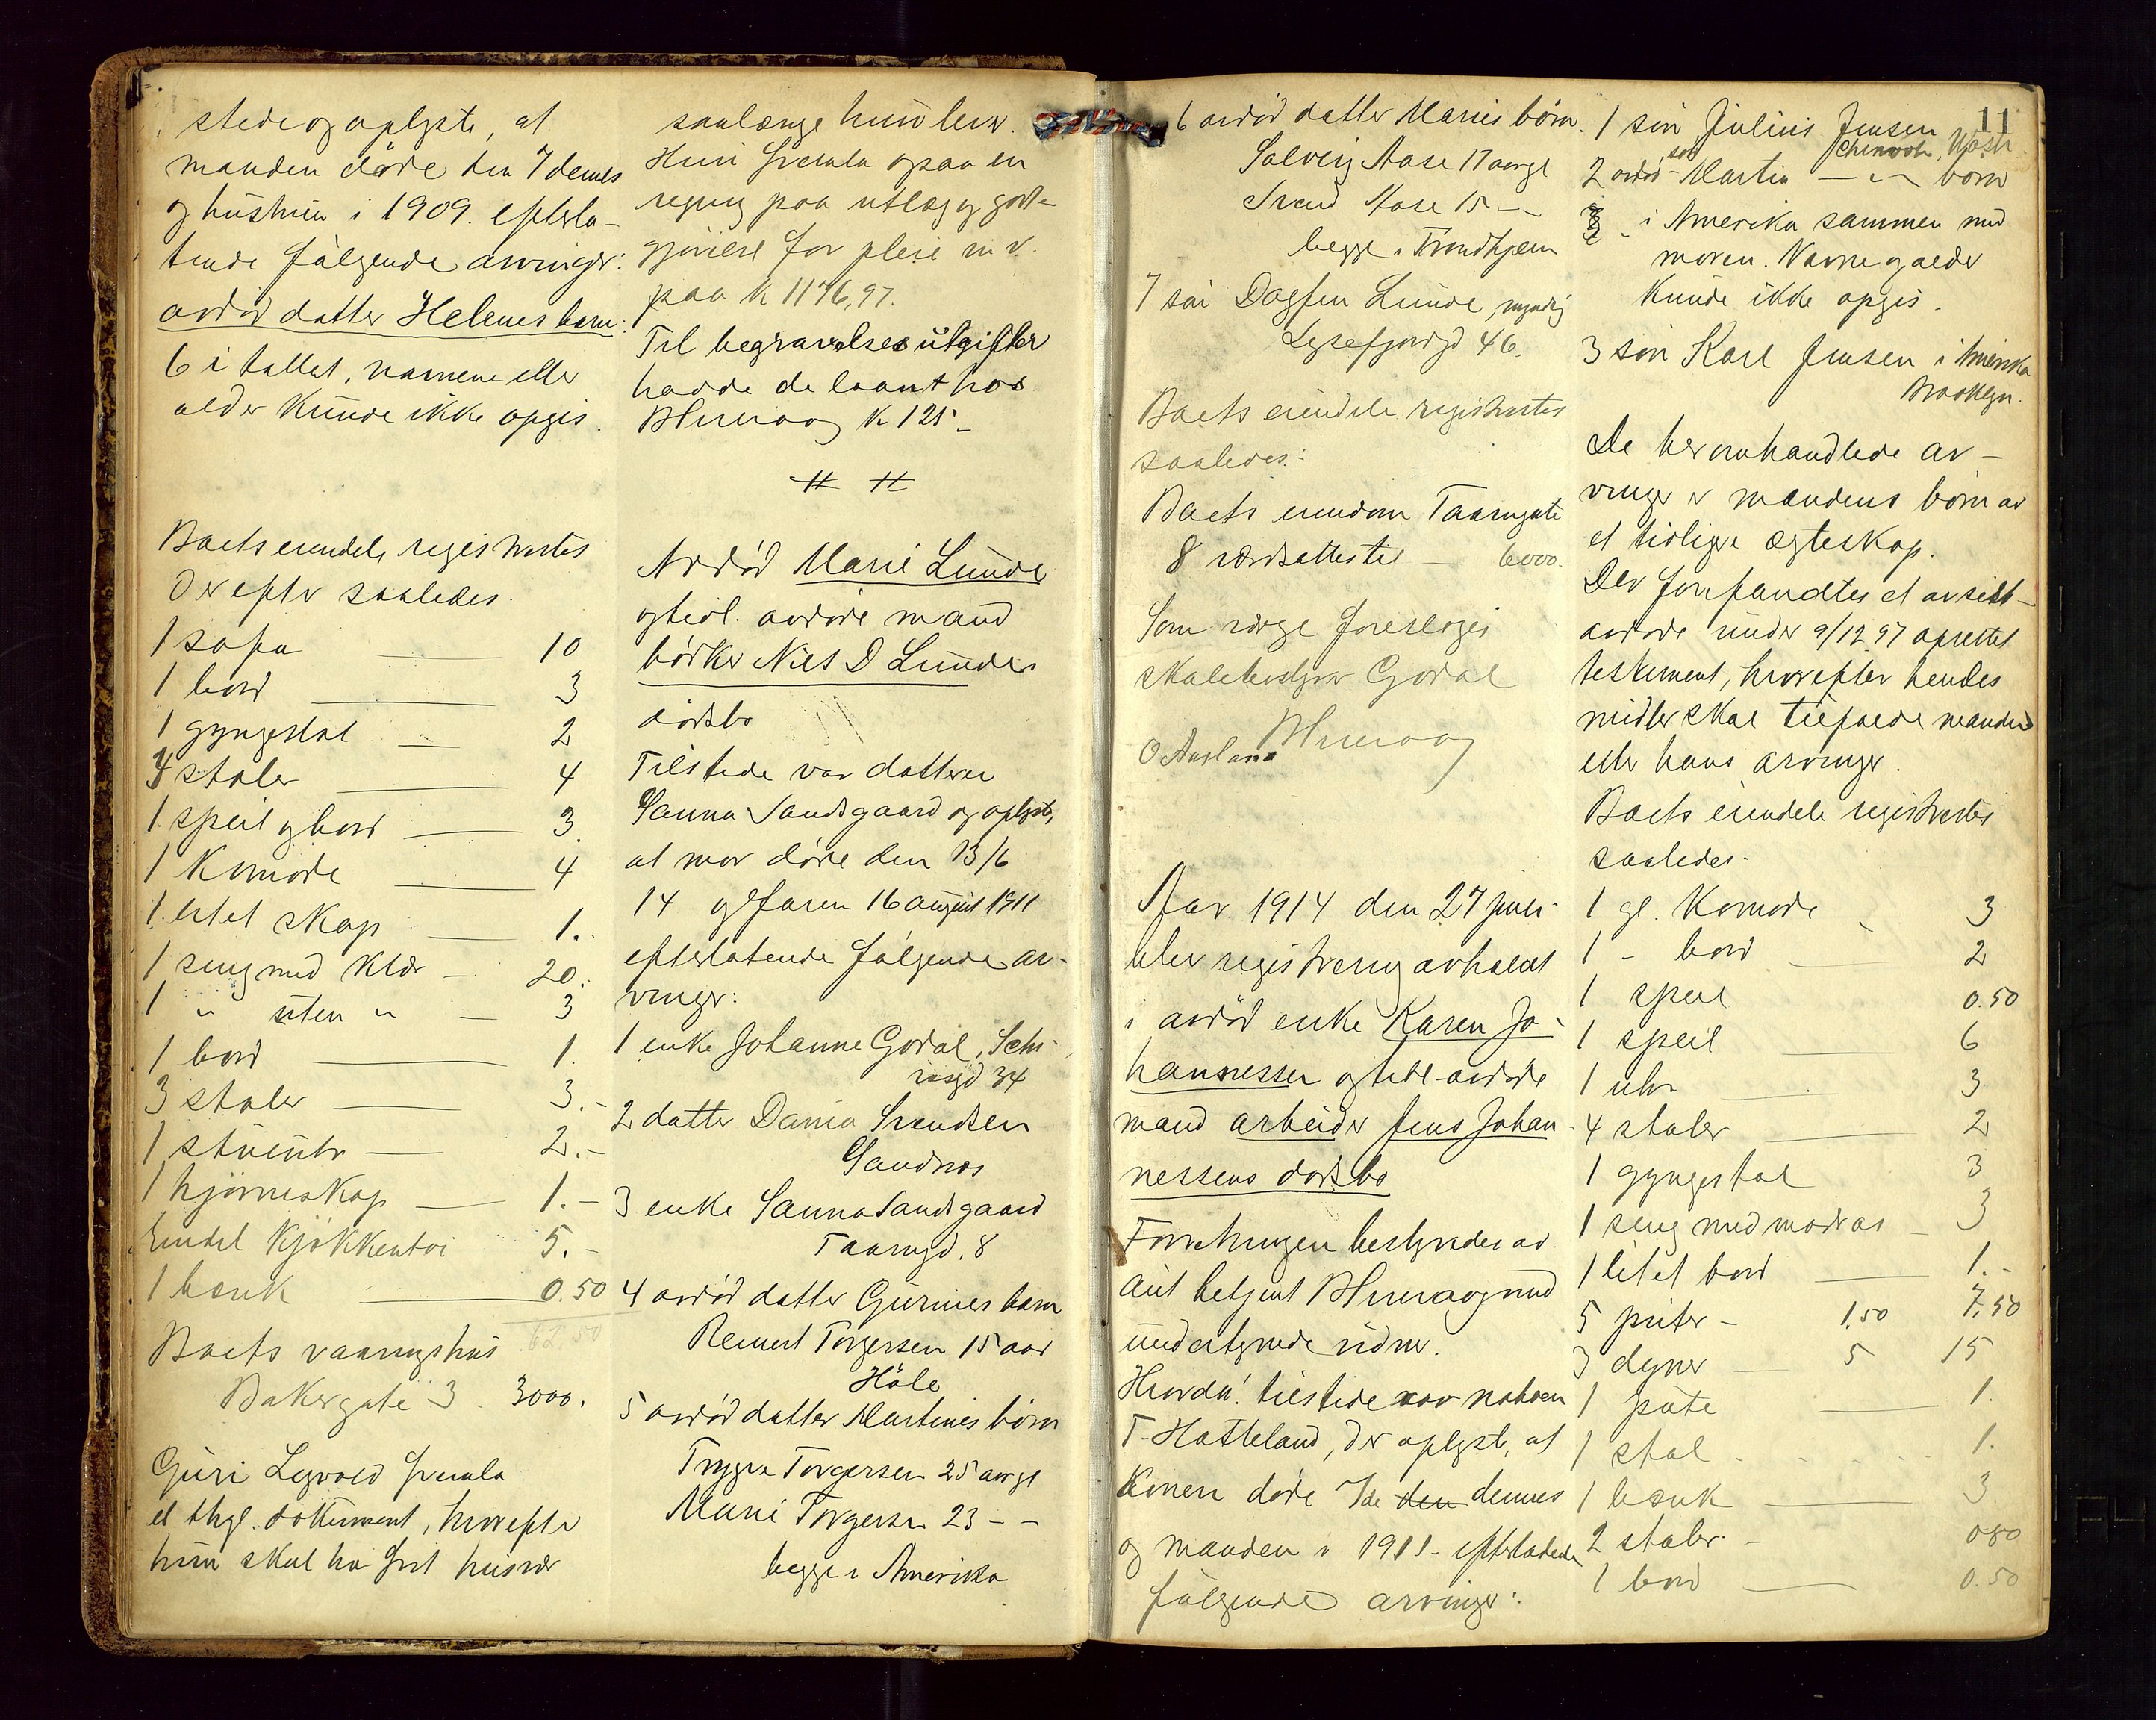 stede og oplyste, at
manden døde den 7 dennes
og hustruen i 1909. efterla-
tende følgende arvinger:
avdød datter Helenes barn:
6 i tallet, navnene eller
alder kunde ikke opgis.
Boets eiendele registrertes
derefter saaledes.
1 sofa 10
1 bord 3
1 gyngestol 2
4 stoler 4
1 speil og bord 3.
1 Komode 4
1 litet skap 1.
1 seng med klær - 20.
1 " uten " - 3
1 bord 1.
3 stoler 3.-
1 stueuhr 2.-
1 hjørneskap 1.-
Endel kjøkkentøi 5.-
1 bænk 0.50
62.50
Boets vaaningshus
Bakergate 3. 3000.
Guri Legvold fremla
et thgl. dokument, hvorefter
hun skal ha frit husvær
saalænge hun lever.
Hun fremla ogsaa en
regning paa utlæg og godt-
gjørelse for pleie m.v.
paa K 1176,97.
Til begravelsesutgifter
hadde de laant hos
K 125.-
Avdød Marie Lunde
og tidl. avdøde mand
bødker Niels D Lundes
dødsbo
Tilstede var datteren
Sanna Sandsgaard og oplyste,
at mor døde den 13/6
14 og faren 16 august 1911
efterlatende følgende ar-
vinger:
1 enke Johanne Godal,
34
2 datter Dania Svendsen
Sandnes
3 enke Sanna Sandsgaard
Taarngd. 8
4 avdød datter Gurines barn
Reinert Torgersen 15 aar
Høle
5 avdød datter Martines børn
Trygve Torgersen 25 aar gl
Marie Torgersen 23 - -
begge i Amerika
6 avdød datter Maries børn.
Solveig Aase 17 aar gl
Svend Aase 15 -
begge i Trondhjem
7 søn Dagfin Lunde, myndig
Lysefjordgd 46.
Boets eiendele registrertes
saaledes:
Boets eiendom Taarngate
8 værdsattes til - 6000.
Som værge foresloges
skolebestyrer Godal
O Ausland
Aar 1914 den 27 juli
blev registrering avholdt
i avdød enke Karen Jo-
hannessen og tidl. avdøde
mand arbeider Jens Johan-
nessens dødsbo
Forretningen bestyredes av
aut betjent med
undertegnede vidner.
Hvorda! tilstede var naboen
T. Hatteland, der oplyste, at
Konen døde 7de den dennes
og manden i 1911 - efterlatende
følgende arvinger:
11
1 søn Julius Jensen
Chinook, Wash
2 avdød søn Martin - " - børn
i Amerika sammen med
moren. Navne og alder
kunde ikke opgis.
3 søn Karl Jensen i Amerika
Brooklyn.
De her omhandlede ar-
vinger er mandens børn av
et tidligere ægteskap.
Der forefandtes et av sidst-
avdøde under 9/12 97 oprettet
testament, hvorefter hendes
midler skal tilfalde manden
eller hans arvinger.
Boets eiendele registrertes
saaledes.
1 gl. Komode 3
1 - bord 2
1 speil 0.50
1 speil 6
1 uhr 3
4 stoler 2
1 gyngestol 3
1 seng med madras 3
1 litet bord 1.-
5 puter - 1,50 7.50
3 dyner 5 15
1 pute 1.
1 stol 1.
1 bænk 3
2 stoler 0.80
1 bord 0.50